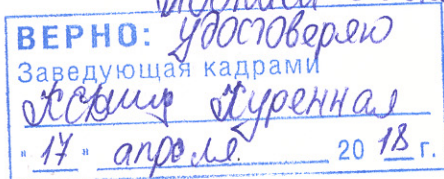 подписи
ВЕРНО: удостоверяю
Заведующая кадрами
Куренная
"17" апреля 2018 г.